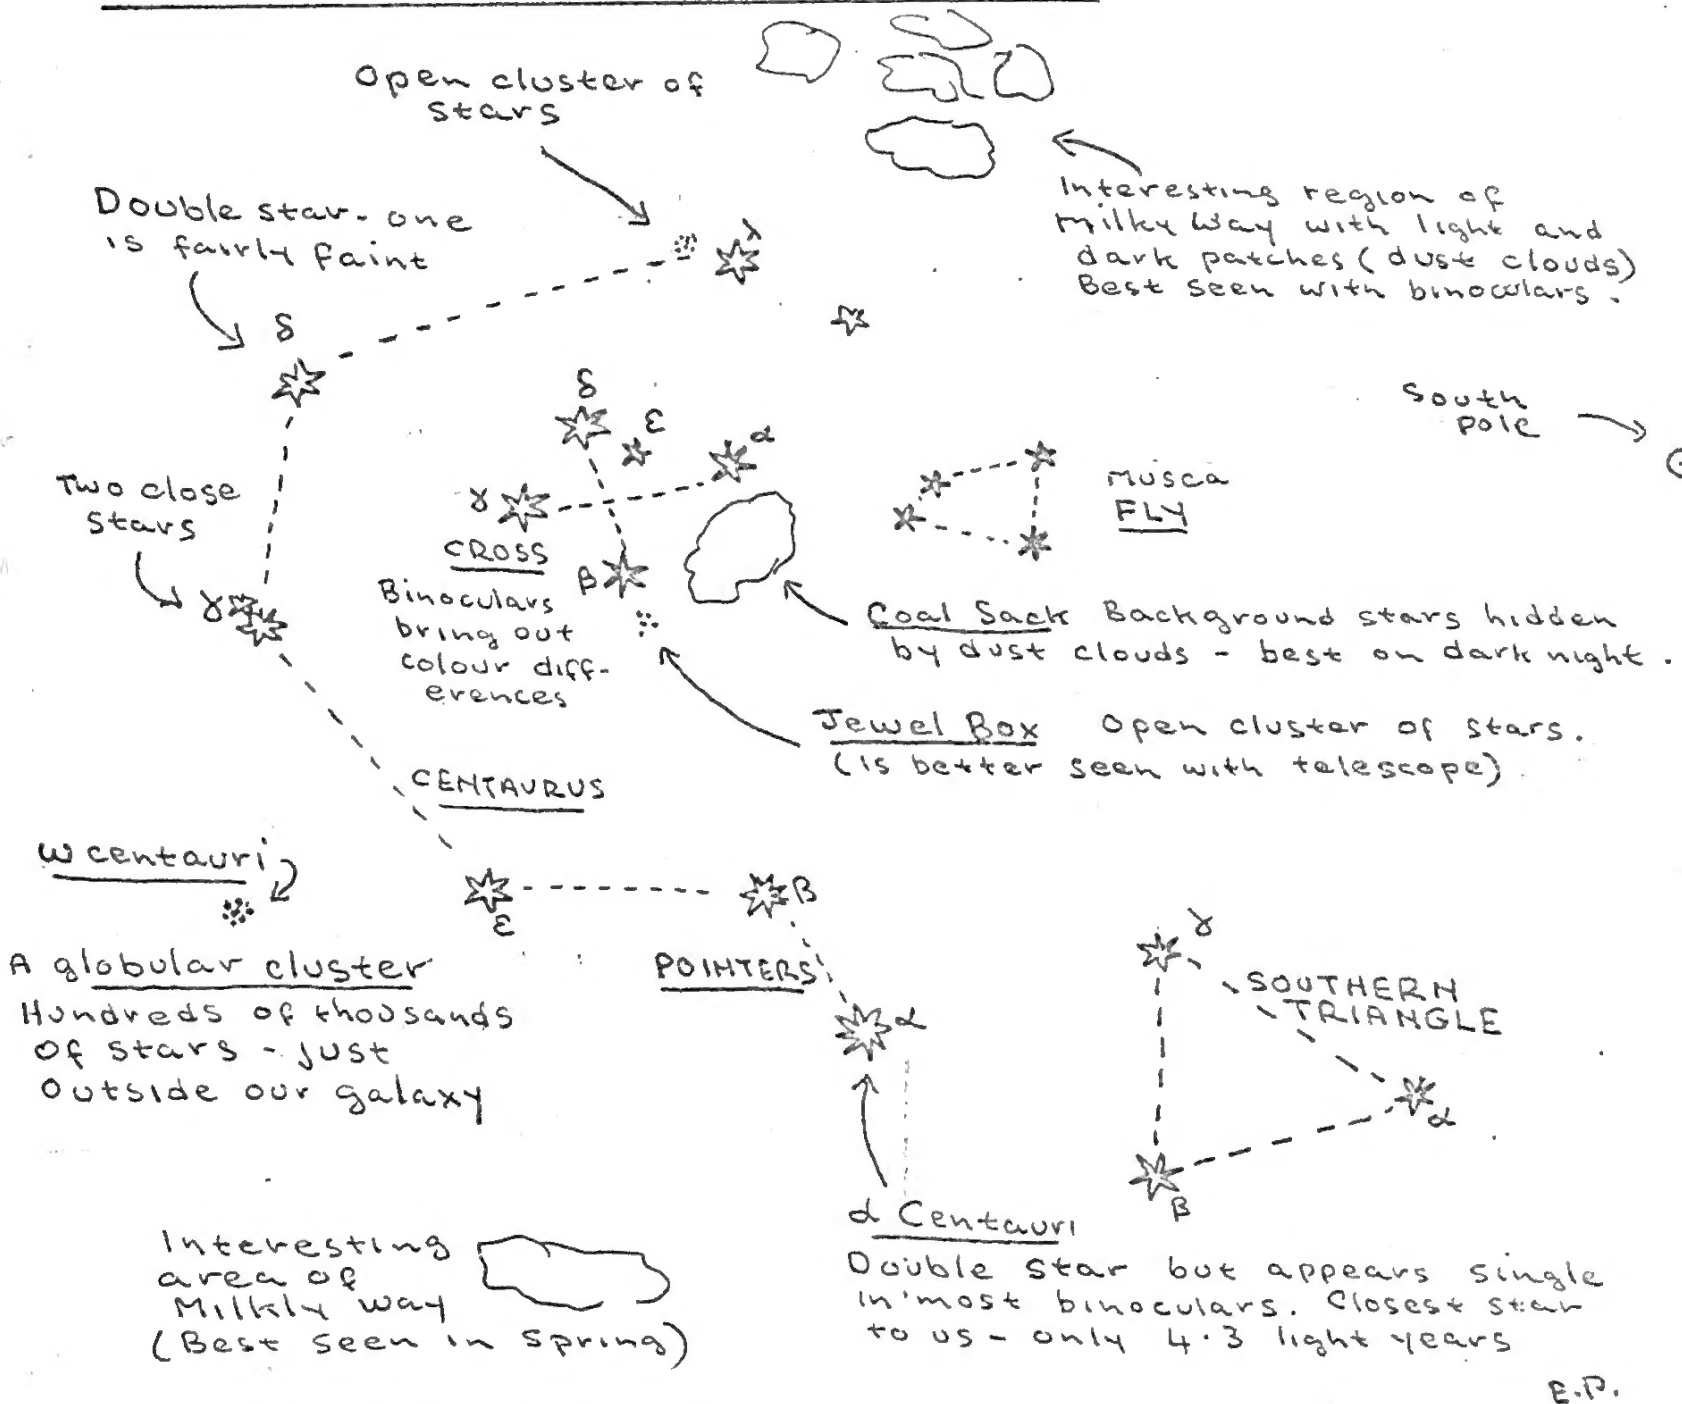 Open cluster of
stars
Interesting region of
Milky Way with light and
dark patches (dust clouds)
Best seen with binoculars.
Double star - one
is fairly faint
λ
δ
South
pole
δ
ε
α
γ
β
CROSS
Binoculars
bring out
colour diff-
erences
Musca
FLY
Two close
stars
γ
Coal Sack Background stars hidden
by dust clouds - best on dark night.
Jewel Box Open cluster of stars.
(is better seen with telescope)
CENTAURUS
ω centauri
ε
β
POINTERS
α
A globular cluster
Hundreds of thousands
of stars - just
outside our galaxy
γ
SOUTHERN
TRIANGLE
α
β
α Centauri
Double star but appears single
in most binoculars. Closest star
to us - only 4.3 light years
Interesting
area of
Milkly way
(Best seen in spring)
E.P.